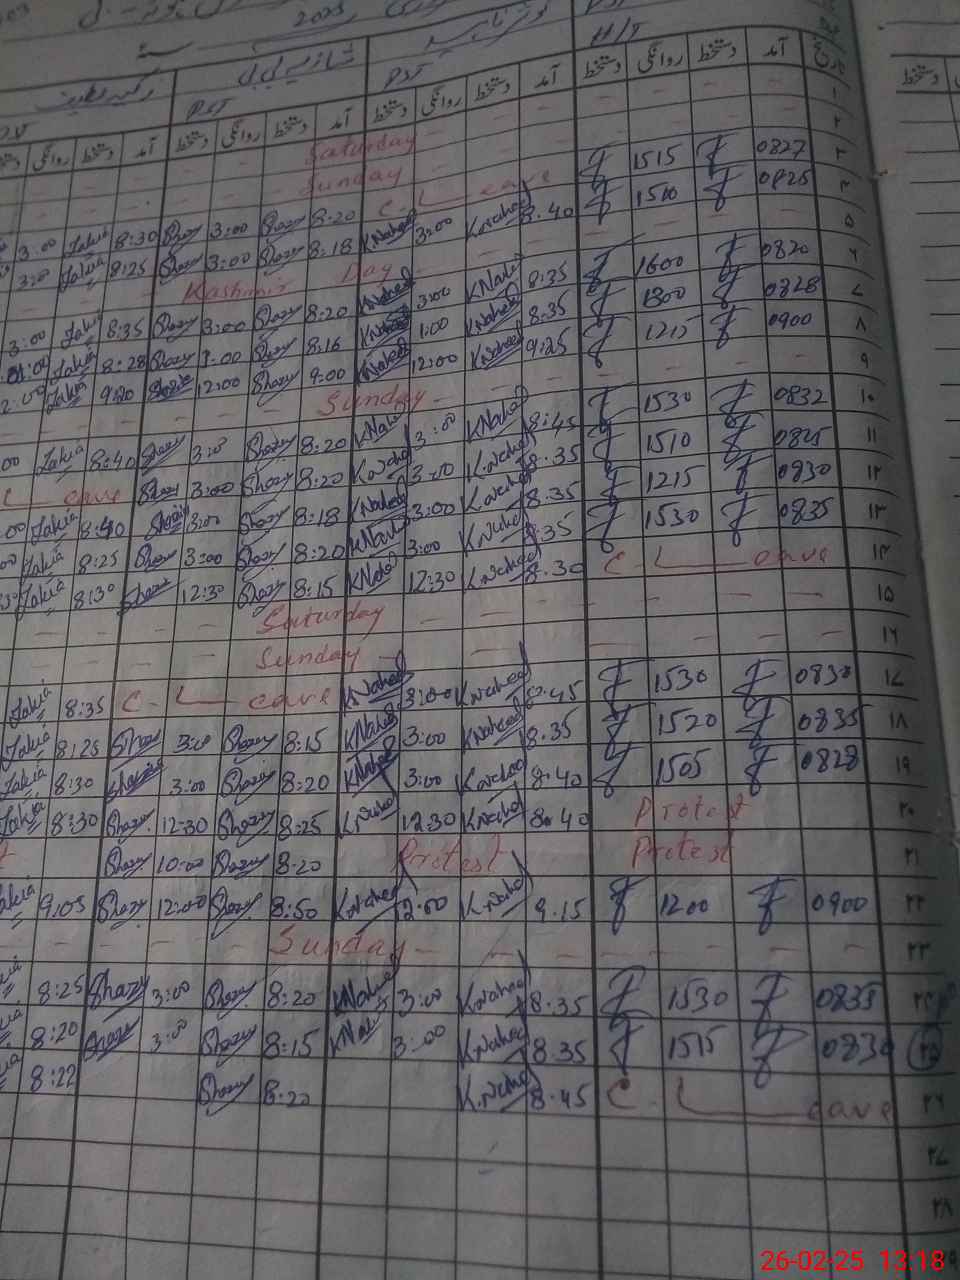 2025
شازیہ بی بی
H/T
PST
PST
تاریخ آمد دستخط روانگی دستخط آمد دستخط روانگی دستخط آمد دستخط روانگی دستخط آمد دستخط روانگی
۱ Saturday
۲ Sunday
۳ 0827 1515 C. Leave 8:20 Shazy 3:00 Shazy 8:30 Zakia 3:00
۴ 0825 1510 8.40 K.Naheed 3:00 K.Naheed 8:18 Shazy 3:00 Shazy 8:25 Zakia 3:00
۵ Kashmir Day
۶ 0820 1600 8:35 K.Naheed 3:00 K.Naheed 8:20 Shazy 3:00 Shazy 8:35 Zakia 3:00
۷ 0828 1300 8:35 K.Naheed 1:00 K.Naheed 8:16 Shazy 1:00 Shazy 8:28 Zakia 01:00
۸ 0900 1215 9:25 K.Naheed 12:00 K.Naheed 9:00 Shazy 12:00 Shazia 9:20 Zakia
۹ Sunday
۱۰ 0832 1530 8:45 K.Naheed 3:00 K.Naheed 8:20 Shazy 3:00 Shazy 8:40 Zakia
۱۱ 0825 1510 8:35 K.Naheed 3:00 K.Naheed 8:20 Shazy 3:00 Shazy C. Leave
۱۲ 0830 1215 8:35 K.Naheed 3:00 K.Naheed 8:18 Shazy 3:00 Shazia 8:40 Zakia
۱۳ 0835 1530 8:35 K.Naheed 3:00 K.Naheed 8:20 Shazy 3:00 Shazy 8:25 Zakia
۱۴ C. Leave 8.30 K.Naheed 12:30 K.Naheed 8:15 Shazy 12:30 Shazy 8:30 Zakia
۱۵ Saturday
۱۶ Sunday
۱۷ 0830 1530 8:45 K.Naheed 3:00 K.Naheed C. Leave 8:35 Zakia
۱۸ 0835 1520 8.35 K.Naheed 3:00 K.Naheed 8:15 Shazy 3:00 Shazy 8:25 Zakia
۱۹ 0828 1505 8:40 K.Naheed 3:00 K.Naheed 8:20 Shazy 3:00 Shazia 8:30 Zakia
۲۰ Protest 8:40 K.Naheed 12:30 K.Naheed 8:25 Shazy 12:30 Shazy 8:30 Zakia
۲۱ Protest Protest 8:20 Shazy 10:00 Shazy
۲۲ 0900 1200 9.15 K.Naheed 12:00 K.Naheed 8:50 Shazy 12:00 Shazy 9:05 Zakia
۲۳ Sunday
۲۴ 0835 1530 8.35 K.Naheed 3:00 K.Naheed 8:20 Shazy 3:00 Shazy 8:25
۲۵ 0830 1515 8.35 K.Naheed 3:00 K.Naheed 8:15 Shazy 3:00 Shazy 8:20
۲۶ C. Leave 8.45 K.Naheed 8:20 Shazy 8:22
۲۷
۲۸
26-02-25 13:18